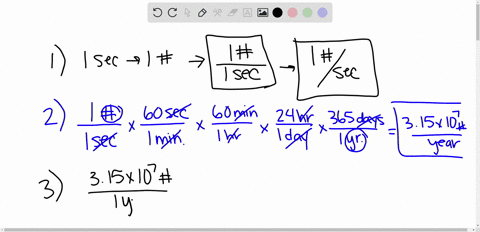 1) 1 sec → 1 # → 1 # / 1 sec → 1 # / sec
2) 1 # / 1 sec × 60 sec / 1 min. × 60 min / 1 hr × 24 hr / 1 day × 365 days / 1 yr. = 3.15 × 10⁷ # / year
3) 3.15 × 10⁷ # / 1 y